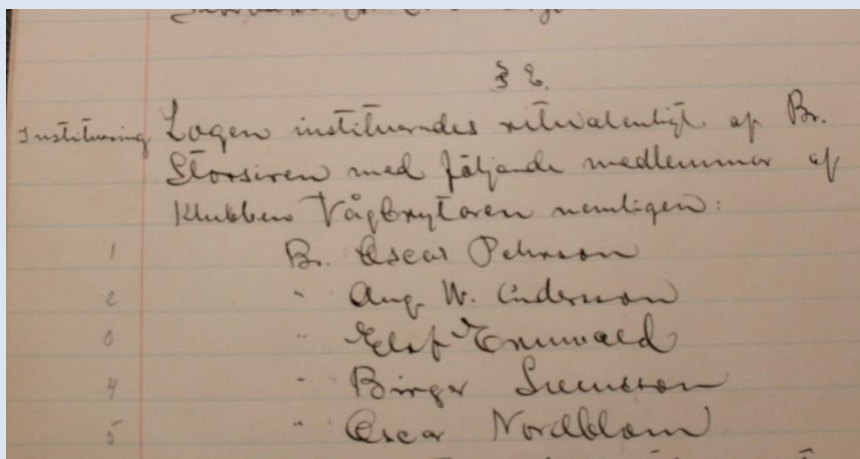 § 2.
Instituering Logen instituerades ritualenligt af Br.
Storsiren med följande medlemmar af
Klubben Vågbrytaren nemligen:
1 Br. Oscar Pehrson
2 " Aug. W. Anderson
" Elof
4 " Birger Svensson
5 " Oscar Nordblom